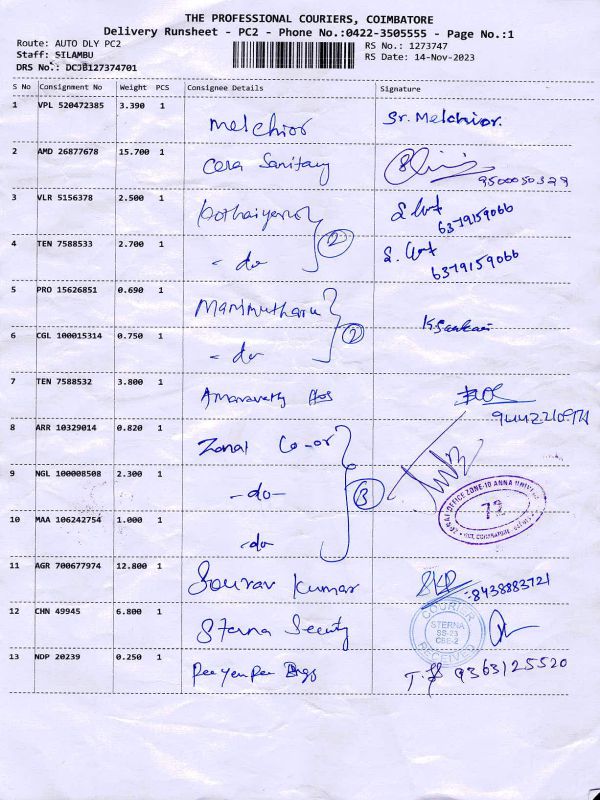 THE PROFESSIONAL COURIERS, COIMBATORE
Delivery Runsheet - PC2 - Phone No.:0422-3505555 - Page No.:1
Route: AUTO DLY PC2 RS No.: 1273747
Staff: SILAMBU RS Date: 14-Nov-2023
DRS No.: DCJB127374701
S No Consignment No Weight PCS Consignee Details Signature
1 VPL 520472385 3.390 1 Melchior Sr. Melchior.
2 AMD 26877678 15.700 1 Cera Sanitary
9500050329
3 VLR 5156378 2.500 1
6379159066
4 TEN 7588533 2.700 1 - do 2
6379159066
5 PRO 15626851 0.690 1
6 CGL 100015314 0.750 1 - do 2
7 TEN 7588532 3.800 1
8 ARR 10329014 0.820 1 Zonal Co-or
9 NGL 100008508 2.300 1 -do- 3
72
10 MAA 106242754 1.000 1 -do
11 AGR 700677974 12.800 1 Sourav Kumar SKP 8438883721
12 CHN 49945 6.800 1 Sterna Security
COURIER
STERNA
SS-23
CBE-2
RECEIVED
13 NDP 20239 0.250 1 9363125520